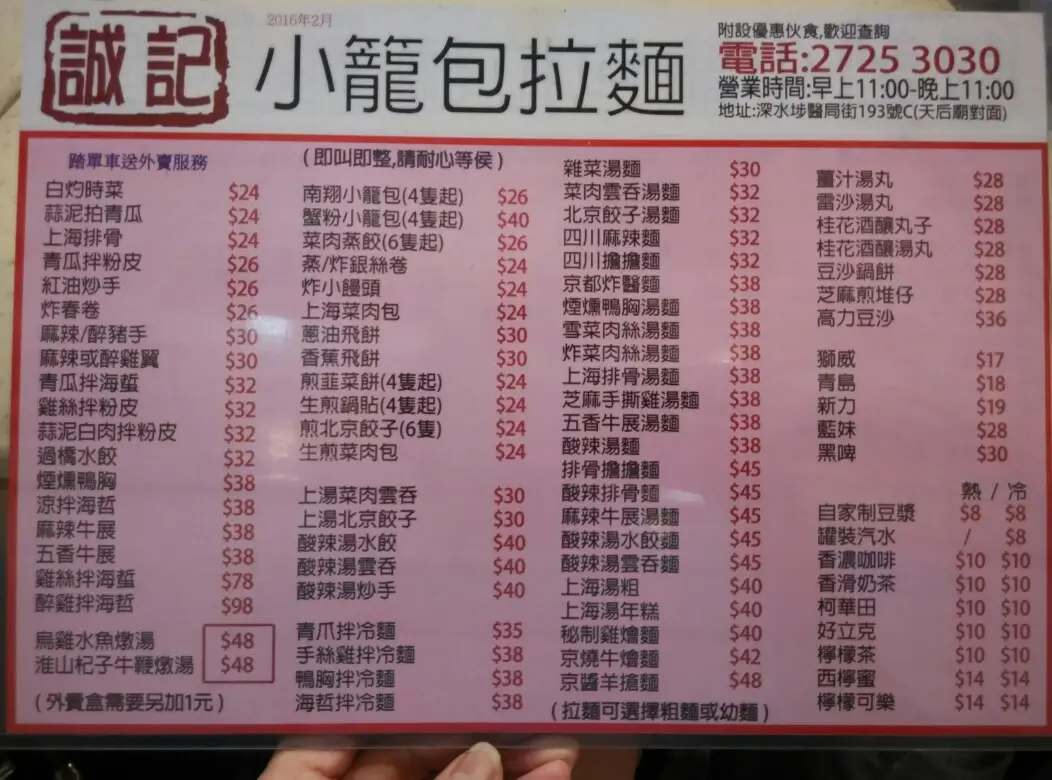 誠記
2016年2月
小籠包拉麵
附設優惠伙食,歡迎查詢
電話:2725 3030
營業時間:早上11:00-晚上11:00
地址:深水埗醫局街193號C(天后廟對面)
踏單車送外賣服務
白灼時菜 $24
蒜泥拍青瓜 $24
上海排骨 $24
青瓜拌粉皮 $26
紅油炒手 $26
炸春卷 $26
麻辣/醉豬手 $30
麻辣或醉雞翼 $30
青瓜拌海蜇 $32
雞絲拌粉皮 $32
蒜泥白肉拌粉皮 $32
過橋水餃 $32
煙燻鴨胸 $38
涼拌海哲 $38
麻辣牛展 $38
五香牛展 $38
雞絲拌海蜇 $78
醉雞拌海哲 $98
烏雞水魚燉湯 $48
淮山杞子牛鞭燉湯 $48
(外賣盒需要另加1元)
(即叫即整,請耐心等侯)
南翔小籠包(4隻起) $26
蟹粉小籠包(4隻起) $40
菜肉蒸餃(6隻起) $26
蒸/炸銀絲卷 $24
炸小饅頭 $24
上海菜肉包 $24
蔥油飛餅 $30
香蕉飛餅 $30
煎韮菜餅(4隻起) $24
生煎鍋貼(4隻起) $24
煎北京餃子(6隻) $24
生煎菜肉包 $24
上湯菜肉雲呑 $30
上湯北京餃子 $30
酸辣湯水餃 $40
酸辣湯雲呑 $40
酸辣湯炒手 $40
青爪拌冷麵 $35
手絲雞拌冷麵 $38
鴨胸拌冷麵 $38
海哲拌冷麵 $38
雜菜湯麵 $30
菜肉雲吞湯麵 $32
北京餃子湯麵 $32
四川麻辣麵 $32
四川擔擔麵 $32
京都炸醫麵 $38
煙燻鴨胸湯麵 $38
雪菜肉絲湯麵 $38
炸菜肉絲湯麵 $38
上海排骨湯麵 $38
芝麻手撕雞湯麵 $38
五香牛展湯麵 $38
酸辣湯麵 $38
排骨擔擔麵 $45
酸辣排骨麵 $45
麻辣牛展湯麵 $45
酸辣湯水餃麵 $45
酸辣湯雲吞麵 $45
上海湯粗 $40
上海湯年糕 $40
秘制雞燴麵 $40
京燒牛燴麵 $42
京醬羊搶麵 $48
(拉麵可選擇粗麵或幼麵)
薑汁湯丸 $28
雷沙湯丸 $28
桂花酒釀丸子 $28
桂花酒釀湯丸 $28
豆沙鍋餅 $28
芝麻煎堆仔 $28
高力豆沙 $36
獅威 $17
青島 $18
新力 $19
藍妹 $28
黑啤 $30
熱 / 冷
自家制豆漿 $8 $8
罐裝汽水 / $8
香濃咖啡 $10 $10
香滑奶茶 $10 $10
柯華田 $10 $10
好立克 $10 $10
檸檬茶 $10 $10
西檸蜜 $14 $14
檸檬可樂 $14 $14